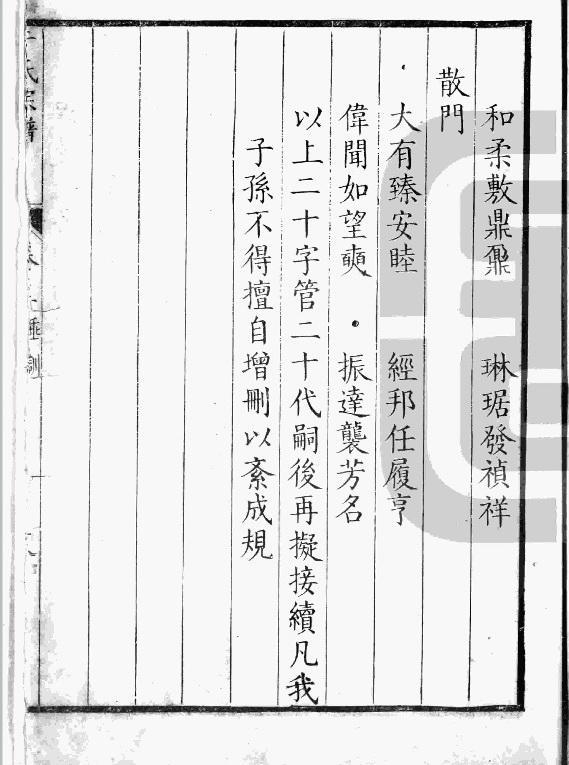 和柔敷鼎鼐 琳琚發禎祥
散門
大有臻安睦 經邦任履亨
偉聞如望奭 振達襲芳名
以上二十字管二十代嗣後再擬接續凡我
子孫不得擅自增刪以紊成規
氏宗譜